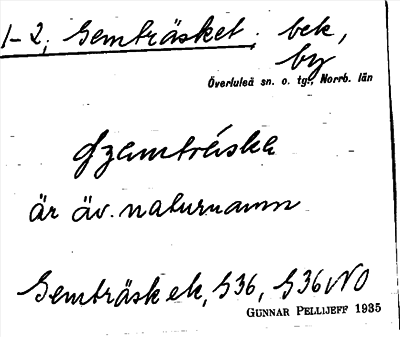 1-2, Gemträsket, bek,
by
Överluleå sn. o. tg., Norrb. län
är äv. naturnamn
Gemträsk ek, S36, S36 NO
GUNNAR PELLIJEFF 1935